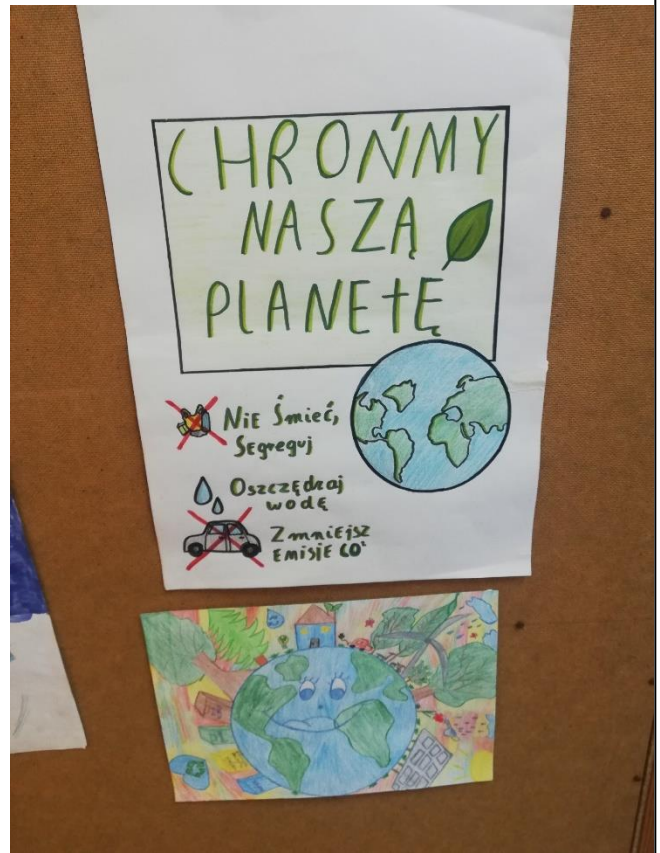 CHROŃMY
NASZĄ
PLANETĘ
NIE Śmieć,
SEgreguj
Oszczędzaj
wodę
Zmniejsz
EmisjE CO²